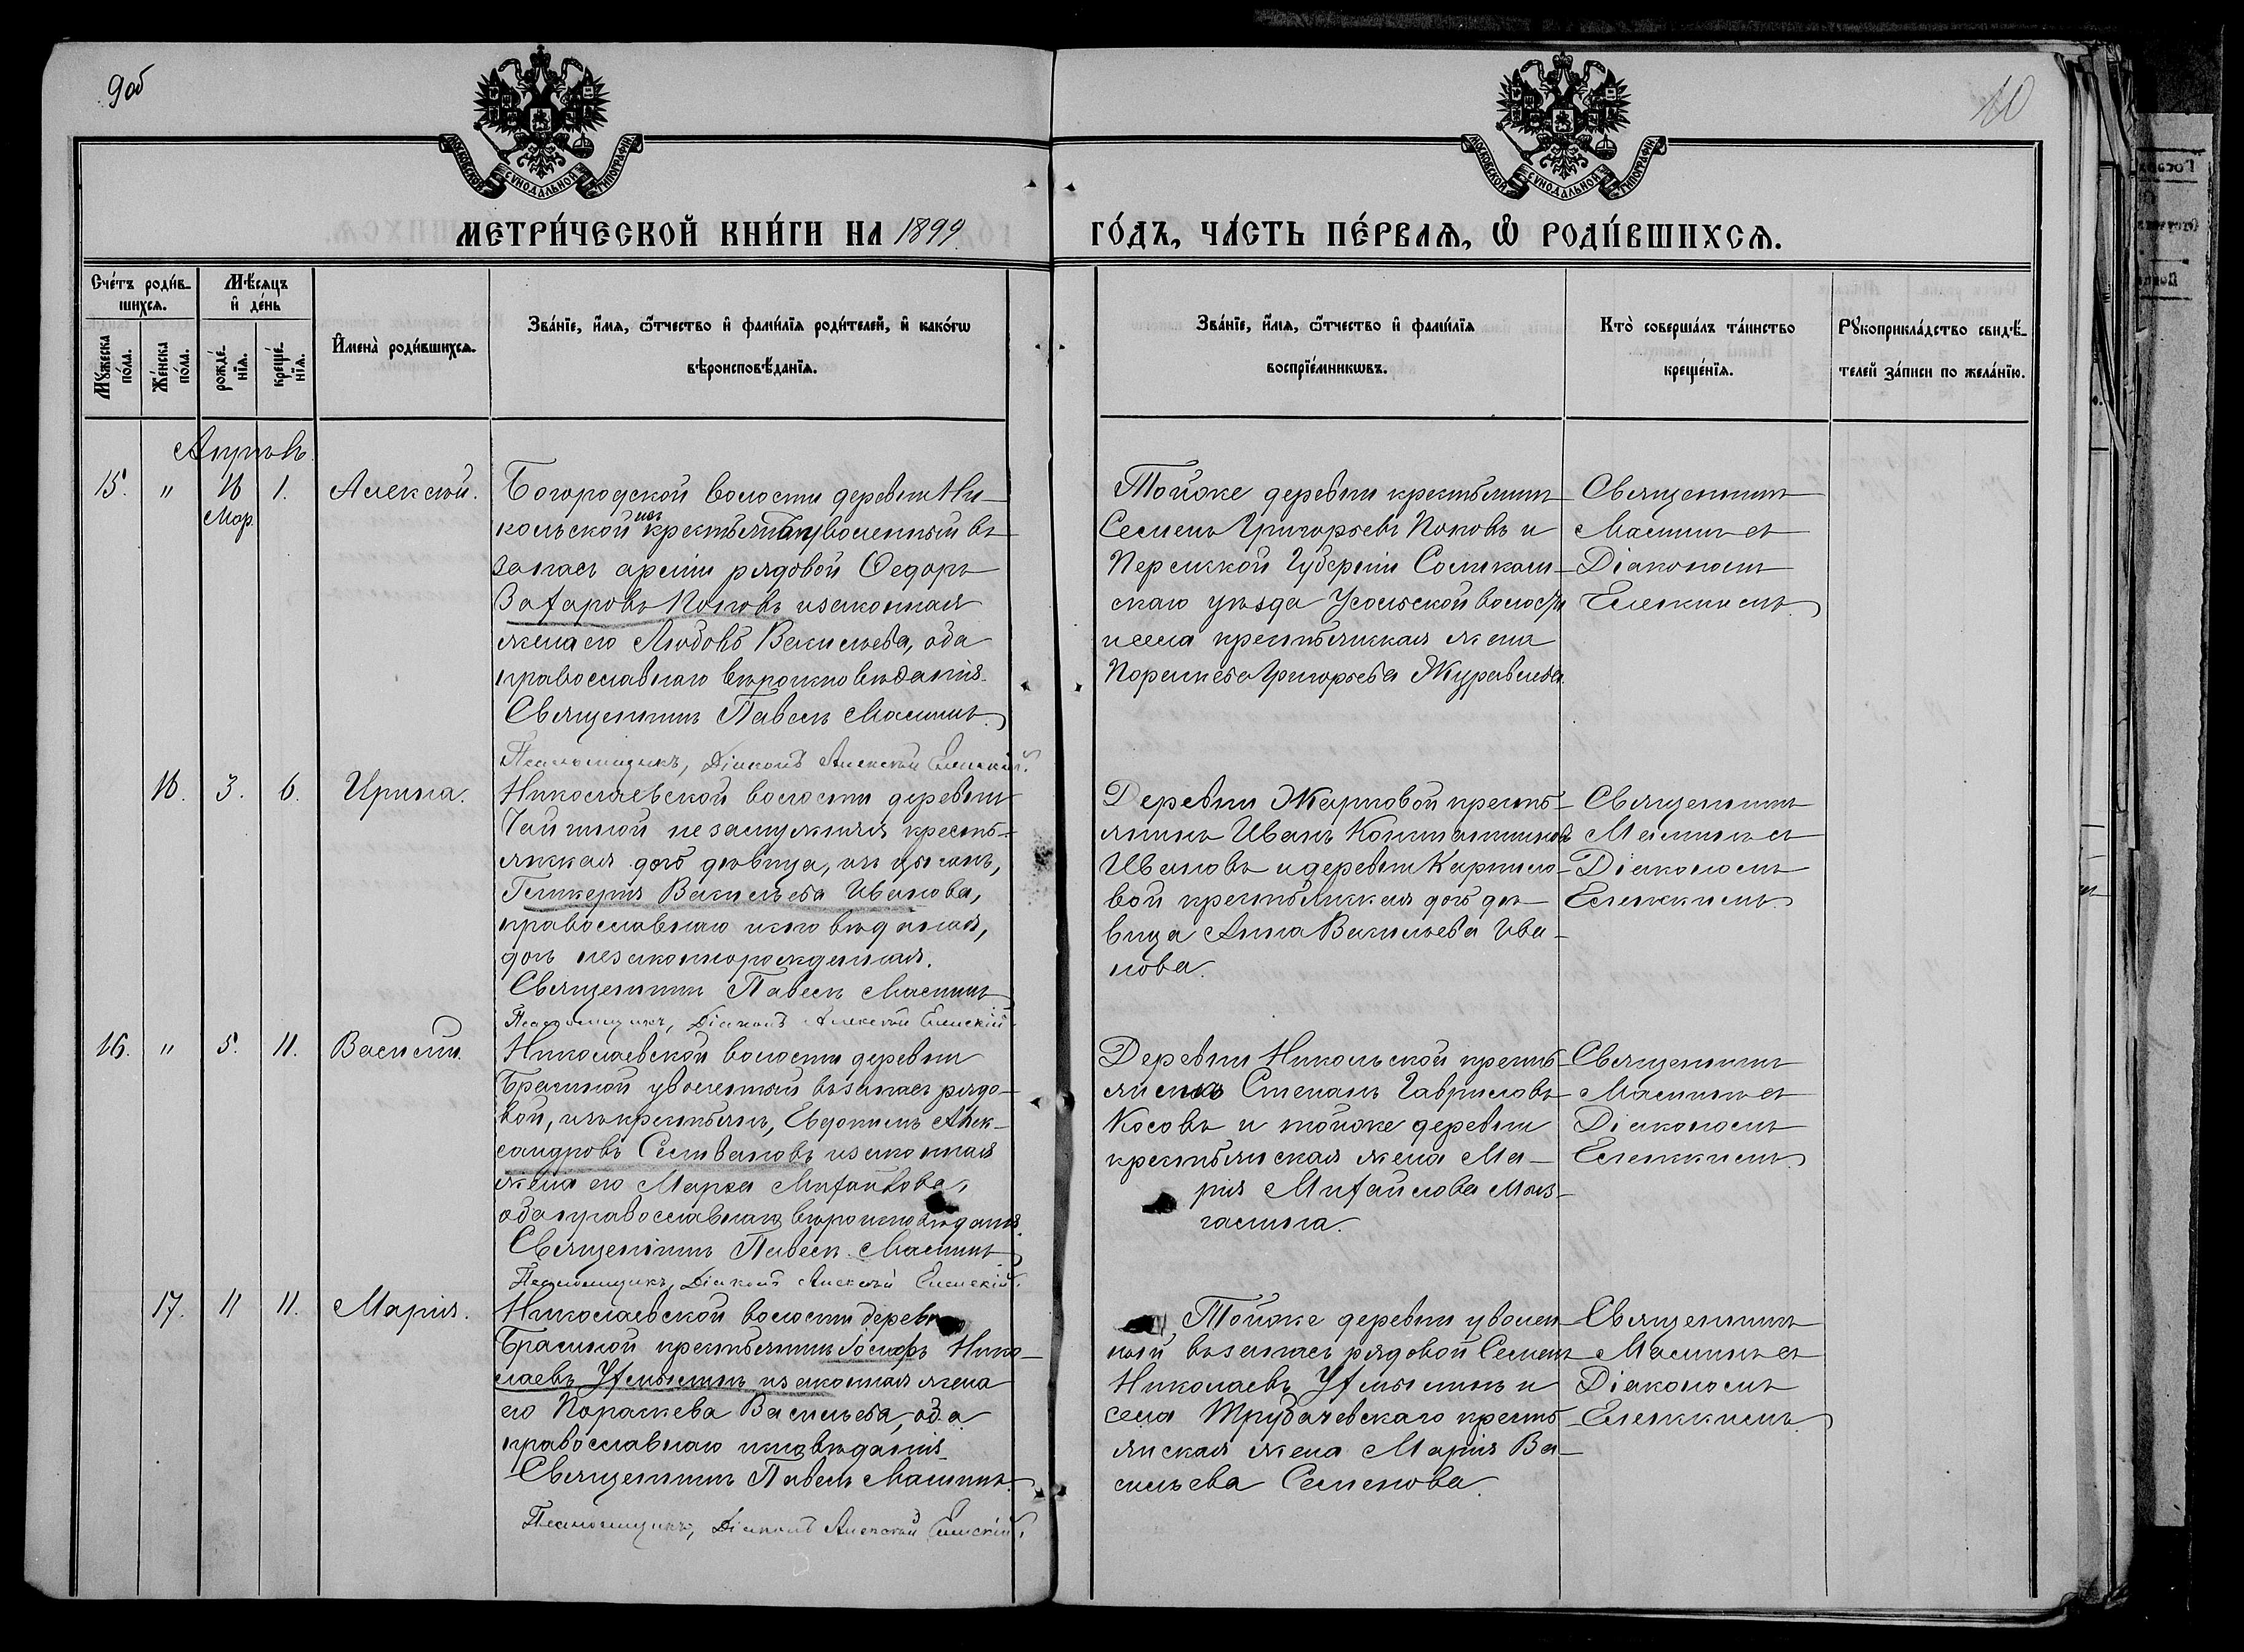 9 об
10
МОСКОВСКОЙ СУНОДАЛЬНОЙ ТИПОГРАФІИ
МОСКОВСКОЙ СУНОДАЛЬНОЙ ТИПОГРАФІИ
МЕТРИ́ЧЕСКОЙ КНИ́ГИ НА 1899
ГО́ДЪ, ЧА́СТЬ ПЕ́РВАѦ, Ѡ РОДИ́ВШИХСѦ.
Сче́тъ роди́в-
шихсѧ.
Мѣ́сяцъ
и̂ де́нь
Мꙋжеска
по́ла.
Же́нска
по́ла.
рожде́-
нїѧ.
креще́-
нїѧ.
И̂мена̀ роди́вшихсѧ.
Зва́нїе, и̂́мѧ, ѻ̂́тчество и̂ фами́лїѧ роди́телей, и̂ како́гѡ
вѣроисповѣ́данїѧ.
Зва́нїе, и̂́мѧ, ѻ̂́тчество и̂ фами́лїѧ
воспрїе́мникѡвъ.
Кто̀ соверша́лъ та́инство
креще́нїѧ.
Рꙋкоприкла́дство свидѣ́-
телей за́писи по жела́нїю.
Апрѣль.
15. " 16 Мар. 1. Алексѣй.
Богородской волости деревни Ни-
кольской изъ крестьянъ уволенный въ
запас арміи рядовой Ѳедоръ
Захаровъ Поповъ и законная
жена его Любовь Васильева, оба
православнаго вѣроисповѣданія.
Священникъ Павелъ Масининъ
Псаломщикъ, Діаконъ Алексѣй Еленскій.
Тойже деревни крестьянинъ
Семенъ Григорьевъ Поповъ и
Пермской Губерніи Соликам-
скаго уѣзда Усольской волости
и села крестьянская жена
Порасковья Григорьева Журавлева.
Священникъ
съ
Діакономъ
Еленскимъ
16. 3. 6. Ирина.
Николаевской волости деревни
незамужняя кресть-
янская дочь дѣвица, изъ цыганъ,
Гликерія Васильева Иванова,
православнаго исповѣданія,
дочь незаконнорожденная.
Священникъ Павелъ
Псаломщикъ, Діаконъ Алексѣй Еленскій.
Деревни Жарковой кресть-
янинъ Иванъ Константиновъ
Ивановъ и деревни
вой крестьянская дочь дѣ-
вица Анна Васильева Ива-
нова.
Священникъ
съ
Діакономъ
Еленскимъ
16. " 5. 11. Василій.
Николаевской волости деревни
уволенный въ запасъ рядо-
вой, изъ крестьянъ, Евдокимъ Алек-
сандровъ Селивановъ и законная
жена его Марѳа Михайлова,
оба православнаго вѣроисповѣданія
Священникъ Павелъ
Псаломщикъ, Діаконъ Алексѣй Еленскій.
Деревни Никольской кресть-
янинъ Степанъ Гавриловъ
Косовъ и тойже деревни
крестьянская жена Ма-
рія Михайлова
Священникъ
съ
Діакономъ
Еленскимъ
17. 11 11. Марія.
Николаевской волости деревни
крестьянинъ Іосифъ Нико-
лаевъ и законная жена
его Параскева Васильева, оба
православнаго исповѣданія
Священникъ Павелъ
Псаломщикъ, Діаконъ Алексѣй Еленскій.
Тойже деревни уволен-
ный въ запасъ рядовой Семенъ
Николаевъ и
села Трубачевскаго кресть-
янская жена Марія Ва-
сильева Семенова.
Священникъ
съ
Діакономъ
Еленскимъ